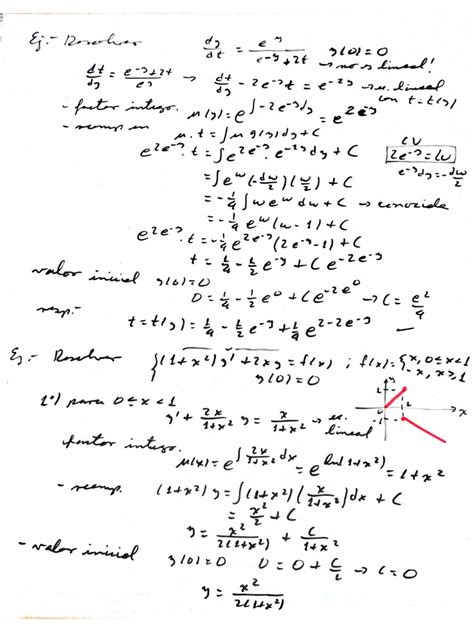 Ej.- Resolver dy/dt = e^-y/(e^-y+2t) y(0)=0
→ no es lineal!
dt/dy = (e^-y+2t)/e^y → dt/dy - 2e^-y t = e^-2y → ec. lineal
con t=t(y)
- factor integ. μ(y)=e^∫-2e^-y dy = e^2e^-y
- reemp en μ.t=∫μ g(y)dy+C
CV
e^2e^-y . t = ∫e^2e^-y . e^-2y dy + C
2e^-y = w
e^-y dy = -dw/2
= ∫e^w (-dw/2)(w/2) + C
= -1/4 ∫w e^w dw + C → conocida
= -1/4 e^w (w-1) + C
e^2e^-y . t = -1/4 e^2e^-y (2e^-y-1) + C
t = 1/4 - 1/2 e^-y + C e^-2e^-y
valor inicial y(0)=0
0 = 1/4 - 1/2 e^0 + C e^-2e^0 → C = e^2/4
resp.-
t=t(y)= 1/4 - 1/2 e^-y + 1/4 e^2-2e^-y
Ej.- Resolver {(1+x²)y' + 2xy = f(x) ; f(x)={x, 0≤x<1
y(0)=0
-x, x≥1
1º) para 0≤x<1
y' + 2x/(1+x²) y = x/(1+x²) → ec.
lineal
factor integ.
μ(x)=e^∫2x/(1+x²) dx = e^ln(1+x²) = 1+x²
- reemp. (1+x²)y = ∫(1+x²)(x/(1+x²))dx + C
= x²/2 + C
y = x²/2(1+x²) + C/(1+x²)
- valor inicial y(0)=0 0=0+C/2 → C=0
y = x²/2(1+x²)